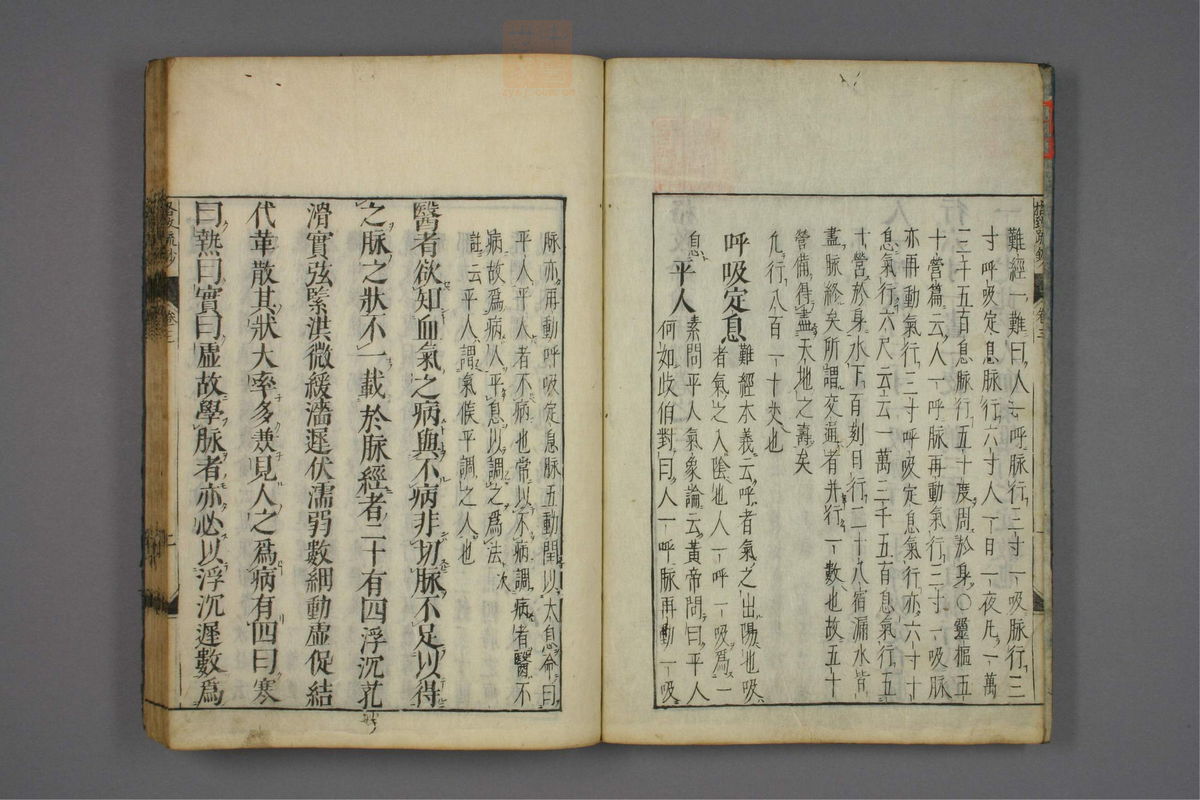 難經一難曰人一呼脈行三寸一吸脈行三
寸呼吸定息脈行六寸人一日一夜凡一萬
三千五百息脈行五十度周於身○靈樞五
十營篇云人一呼脈再動氣行三寸一吸脈
亦再動氣行三寸呼吸定息氣行亦六寸十
息氣行六尺云云一萬三千五百息氣行五
十營於身水下百刻日行二十八宿漏水皆
盡脈終矣所謂交通者并行一數也故五十
營備得盡天地之壽矣
凡行八百一十丈也
呼吸定息難經本義云呼者氣之出陽也吸
者氣之入陰也人一呼一吸爲一
息
平人素問平人氣象論云黃帝問曰平人
何如岐伯對曰人一呼脈再動一吸
脈亦再動呼吸定息脈五動閏以太息命曰
平人平人者不病也常以不病調病者醫不
病故爲病人平息以調之爲法次
註云平人謂氣候平調之人也
醫者欲知血氣之病與不病非切脈不足以得
之脈之狀不一載於脈經者二十有四浮沉芤
滑實弦緊洪微緩濇遲伏濡弱數細動虛促結
代革散其狀大率多兼見人之爲病有四曰寒
曰熱曰實曰虛故學脈者亦必以浮沉遲數爲